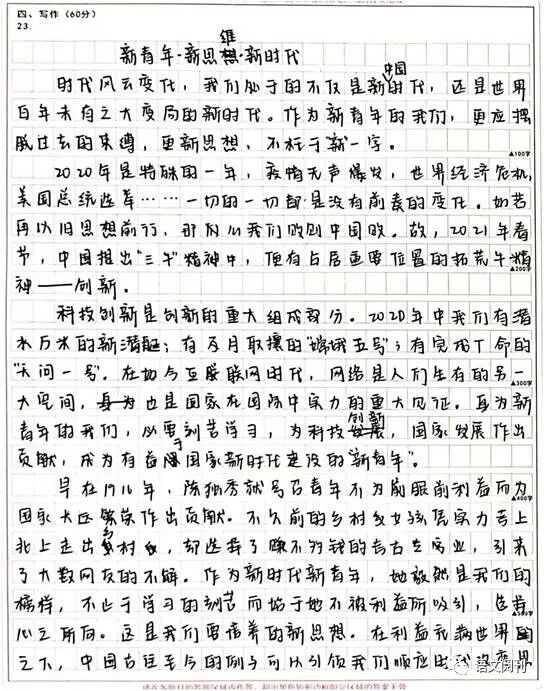 四、写作（60分）
23.
新青年·新思维·新时代
时代风云变化，我们处于的不仅是新中国时代，还是世界
百年未有之大变局的新时代。作为新青年的我们，更应摆
脱过去的束缚，更新思想，不枉于新一字。
▲100字
2020年是特殊的一年，疫情无声爆发，世界经济危机，
美国总统选举……一切的一切都是没有前奏的变化。如若
再以旧思想前行，那何以我们败则中国败。故，2021年春
节，中国推出"三牛"精神中，便有占居重要位置的拓荒牛精
▲200字
神——创新。
科技创新是创新的重大组成部分。2020年中我们有潜
水万米的新潜艇；有及月取壤的"嫦娥五号"；有完成丁命的
"天问一号"。在如今互联网时代，网络是人们生存的另一
▲300字
大空间，也是国家在国际中实力的重大见证。身为新
青年的我们，必要刻苦学习，为科技创新，国家发展作出
贡献，成为有益于国家新时代建设的"新青年"。
早在1916年，陈独秀就号召青年不为屈服前利益而为
▲400字
国家大区繁荣作出贡献。不久前的乡村女孩凭实力考上
北上走出乡村，却选择了赚不到钱的考古专业，引来
了大数网友的不解。作为新时代新青年，她毅然是我们的
榜样，不止于学习的刻苦而始于她不被利益所吸引，追昔
▲500字
心之所向。这是我们要培养的新思想。在利益充满世界的
之下，中国古往至今的例子可以引领我们顺应时代变
请在各题目的答题区域内作答，超出黑色矩形边框限定区域的答案无效
语文阅刊